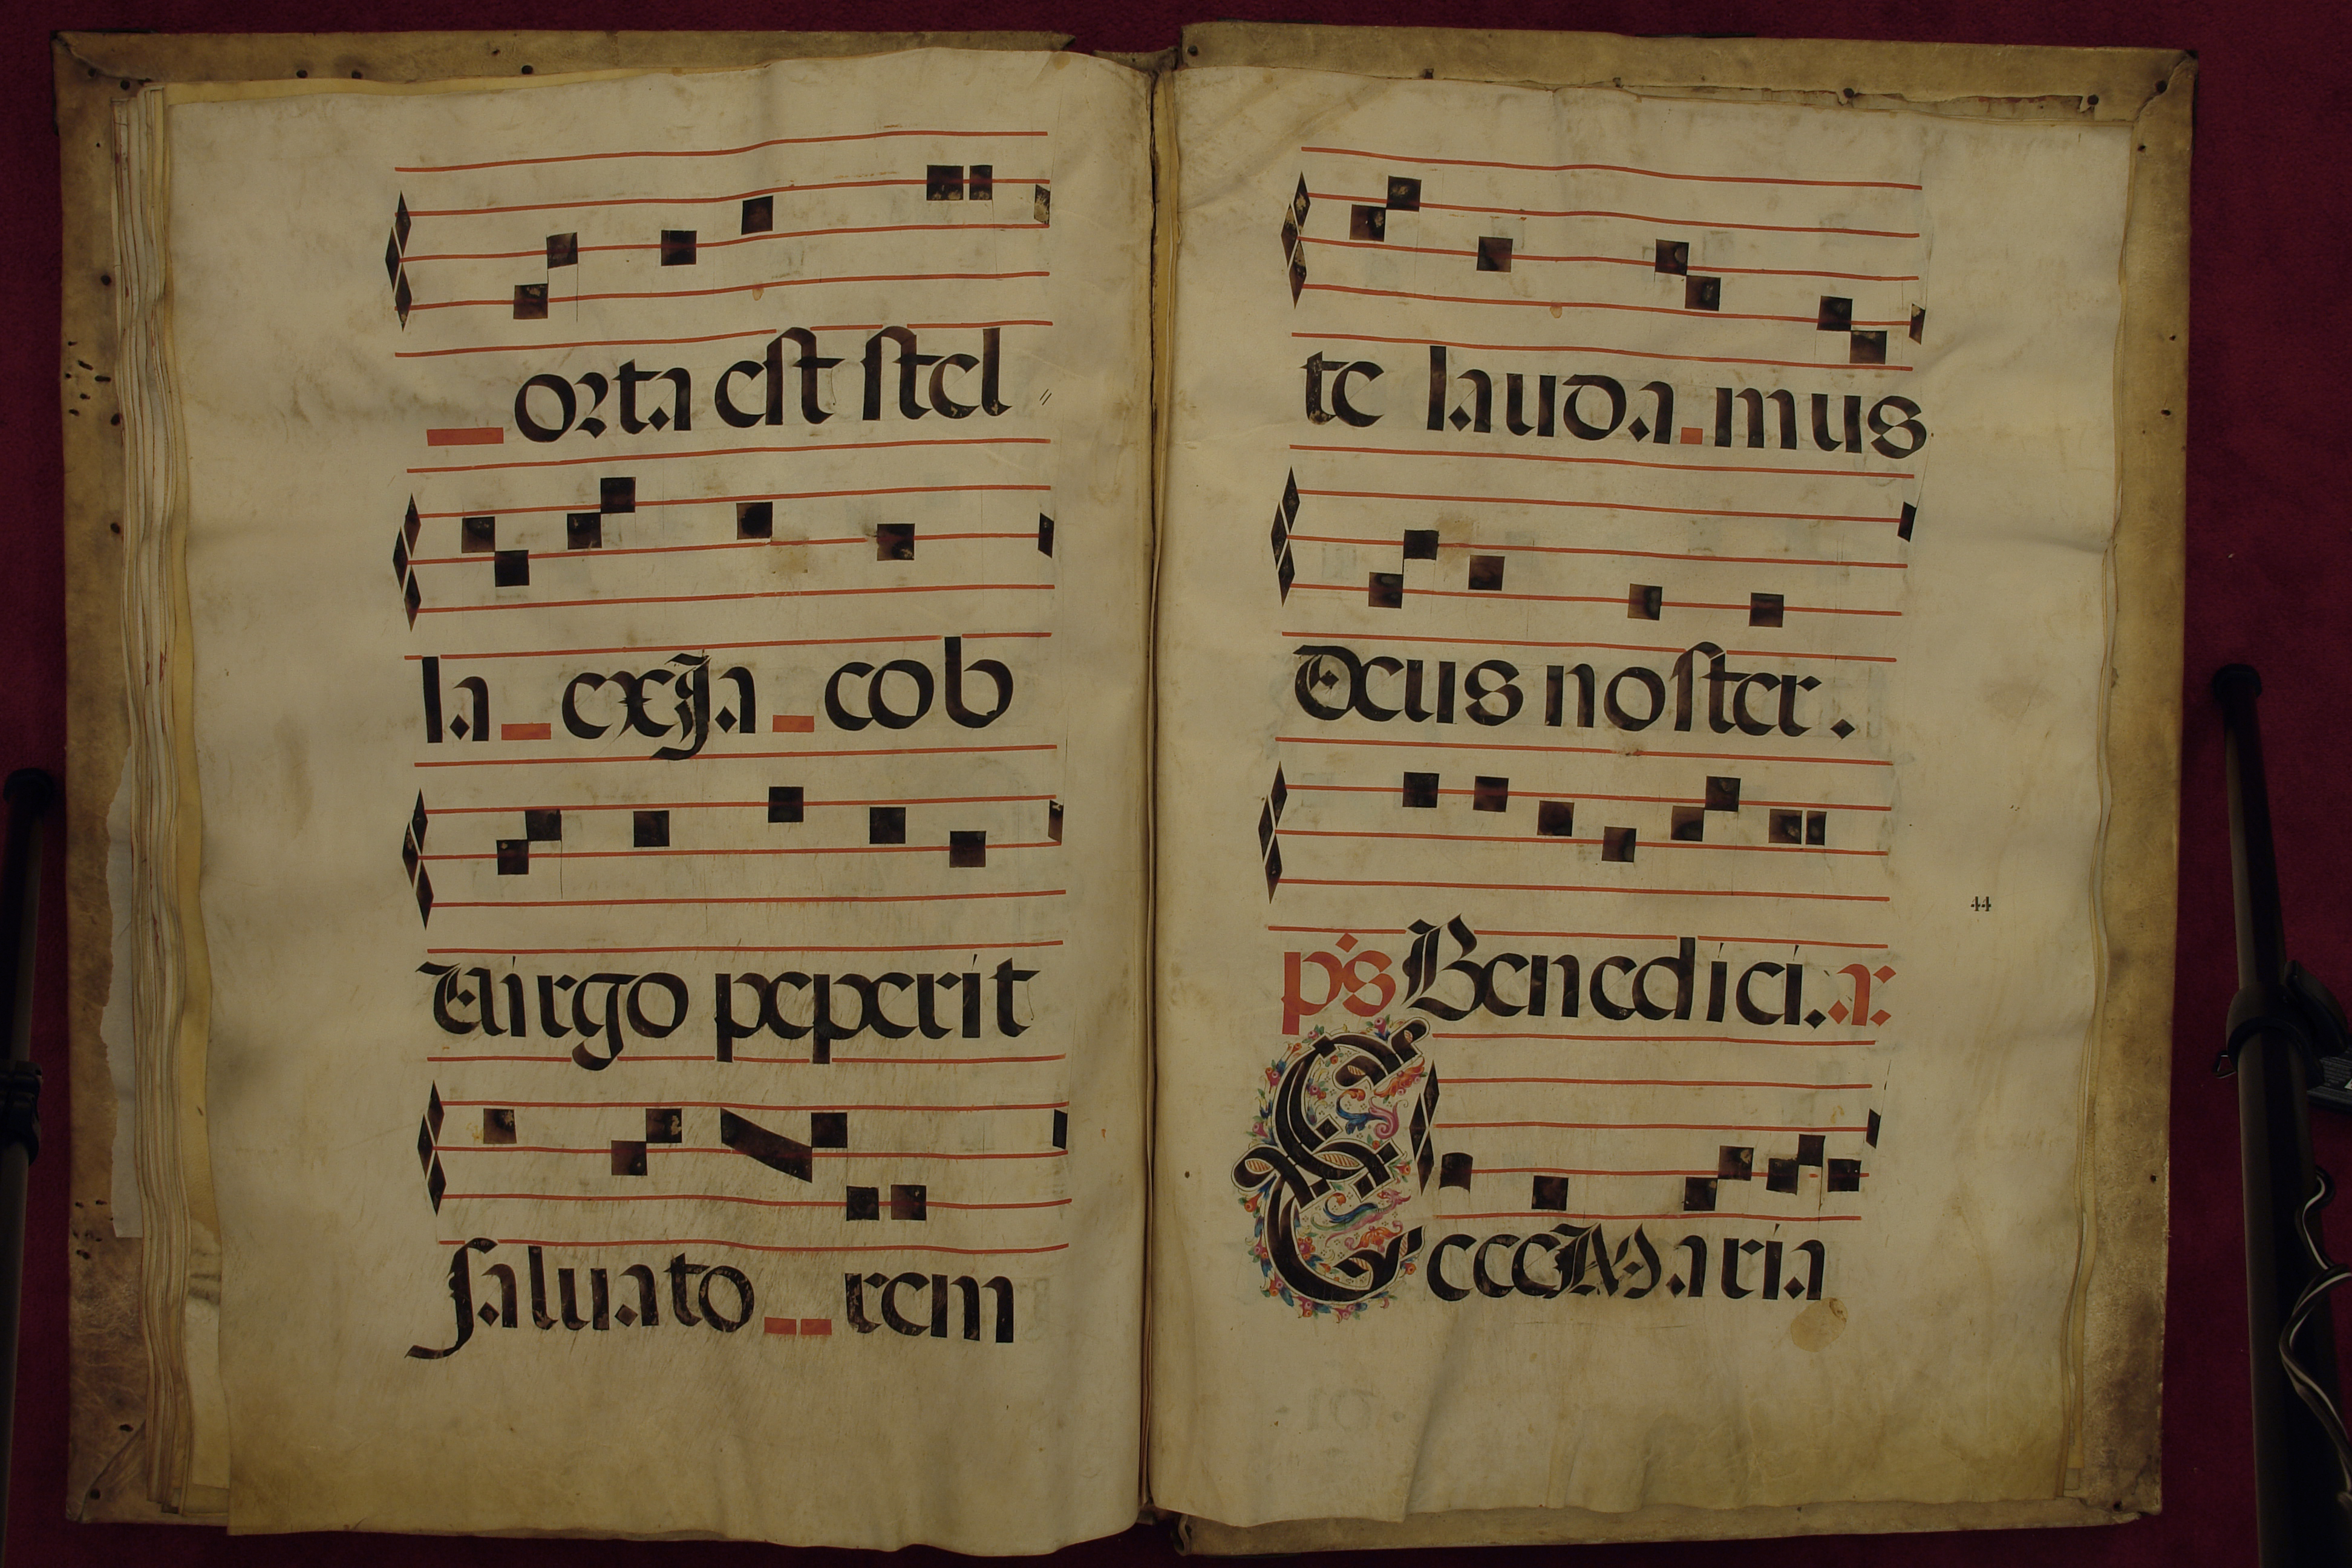 orta est stel
la ex Ja cob
Virgo peperit
saluato rem
te lauda mus
Deus noster.
ps Benedici. a.
44
Ecce Maria